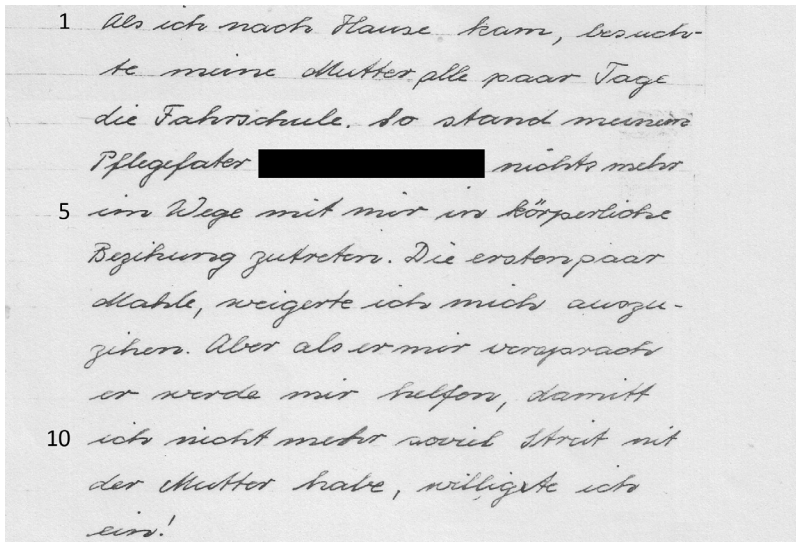 1 Als ich nach Hause kam, besuch-
te meine Mutter alle paar Tage
die Fahrschule. So stand meinem
Pflegefater nichts mehr
5 im Wege mit mir in körperliche
Bezihung zutreten. Die ersten paar
Mahle, weigerte ich mich auszu-
zihen. Aber als er mir versprach
er werde mir helfen, damitt
10 ich nicht mehr soviel Streit mit
der Mutter habe, willigte ich
ein!